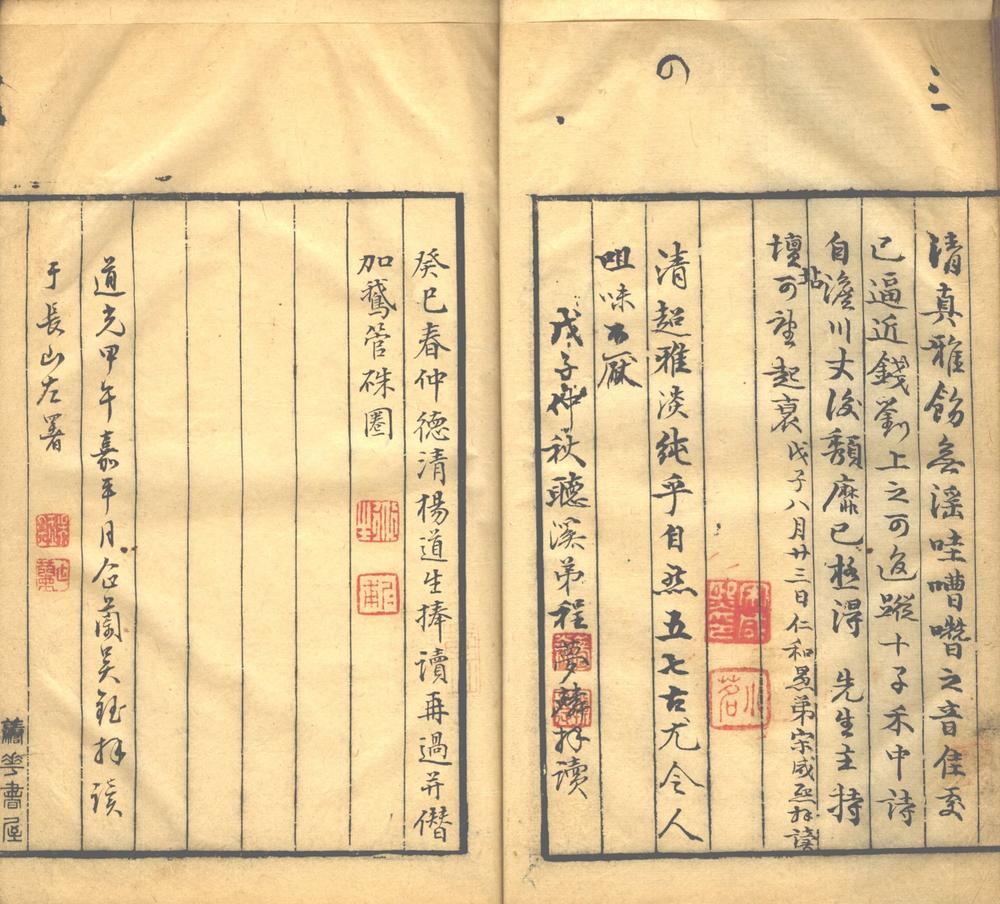 三
清真雅飭無淫哇嘈囋之音佳處
已逼近錢劉上之可追蹤十子禾中詩
自澹川丈後頽靡已極得　先生主持
壇坫可望起衰戊子八月廿三日仁和愚弟宗咸熙拜讀
清超雅淡純乎自然五七古尤令人
咀味不厭
戊子仲秋聽溪弟程夢麟拜讀
癸巳春仲德清楊道生捧讀再過并僭
加鵞管硃圈
道光甲午嘉平月谷蘭吳鈺拜讀
于長山左署
書屋